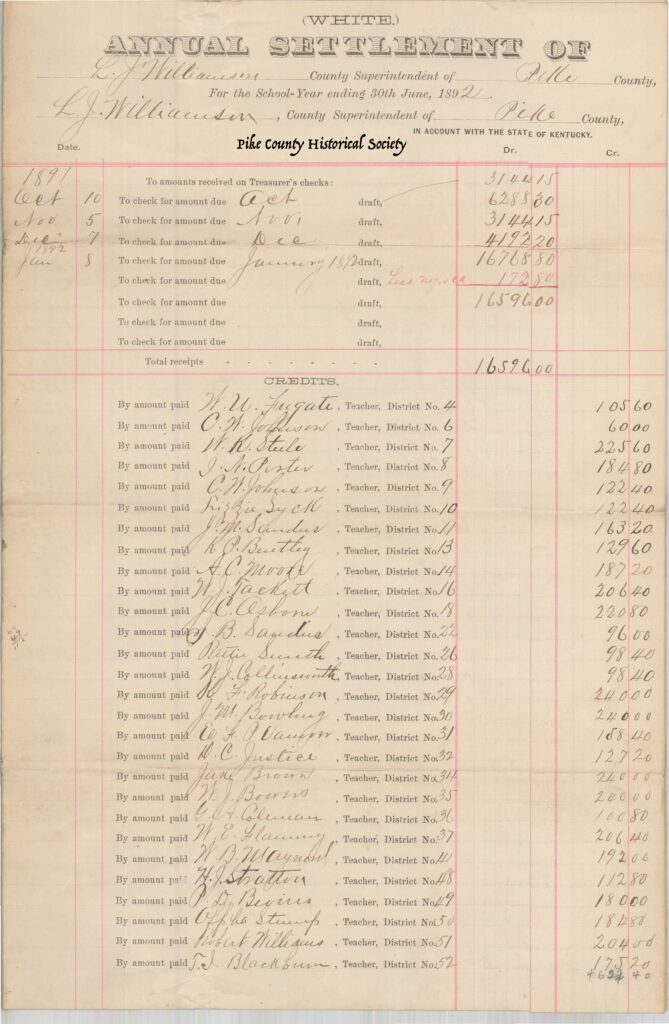 (WHITE.)
ANNUAL SETTLEMENT OF
L. J. Williamson County Superintendent of Pike County,
For the School-Year ending 30th June, 1892.
L. J. Williamson, County Superintendent of Pike County,
IN ACCOUNT WITH THE STATE OF KENTUCKY.
Pike County Historical Society
Date. Dr. Cr.
1891 To amounts received on Treasurer's checks: 3144 15
Oct 10 To check for amount due Oct draft, 6288 30
Nov 5 To check for amount due Nov draft, 3144 15
Dec 7 To check for amount due Dec draft, 4192 20
1892
Jan 8 To check for amount due January 1892 draft, 16768 80
To check for amount due draft, Less 172 80
To check for amount due draft, 16596 00
To check for amount due draft,
To check for amount due draft,
Total receipts - - - - - - - 16596 00
CREDITS.
By amount paid W. U. Fugate, Teacher, District No. 4 105 60
By amount paid C. W. Johnson, Teacher, District No. 6 60 00
By amount paid W. K. Steele, Teacher, District No. 7 225 60
By amount paid J. N. Porter, Teacher, District No. 8 184 80
By amount paid C. W. Johnson, Teacher, District No. 9 122 40
By amount paid Lizzie Syck, Teacher, District No. 10 122 40
By amount paid J. M. Sanders, Teacher, District No. 11 163 20
By amount paid K. P. Bentley, Teacher, District No. 13 129 60
By amount paid A. C. Moore, Teacher, District No. 14 187 20
By amount paid W. J. Tackett, Teacher, District No. 16 206 40
By amount paid J. C. Osborn, Teacher, District No. 18 220 80
By amount paid J. B. Sanders, Teacher, District No. 22 96 00
By amount paid Rettie Smith, Teacher, District No. 26 98 40
By amount paid W. J. Collinsworth, Teacher, District No. 28 98 40
By amount paid F. Robinson, Teacher, District No. 29 240 00
By amount paid J. M. Bowling, Teacher, District No. 30 240 00
By amount paid E. F. P. Damron, Teacher, District No. 31 158 40
By amount paid D. C. Justice, Teacher, District No. 32 127 20
By amount paid Jake Brown, Teacher, District No. 34 240 00
By amount paid W. J. Bowers, Teacher, District No. 35 200 00
By amount paid Coleman, Teacher, District No. 36 100 80
By amount paid W. E. Flannery, Teacher, District No. 37 206 40
By amount paid W. B. Maynard, Teacher, District No. 41 192 00
By amount paid H. J. Stratton, Teacher, District No. 48 112 80
By amount paid P. D. Bevins, Teacher, District No. 49 180 00
By amount paid Offha Stump, Teacher, District No. 50 184 80
By amount paid Robert Williams, Teacher, District No. 51 204 00
By amount paid T. J. Blackburn, Teacher, District No. 52 175 20